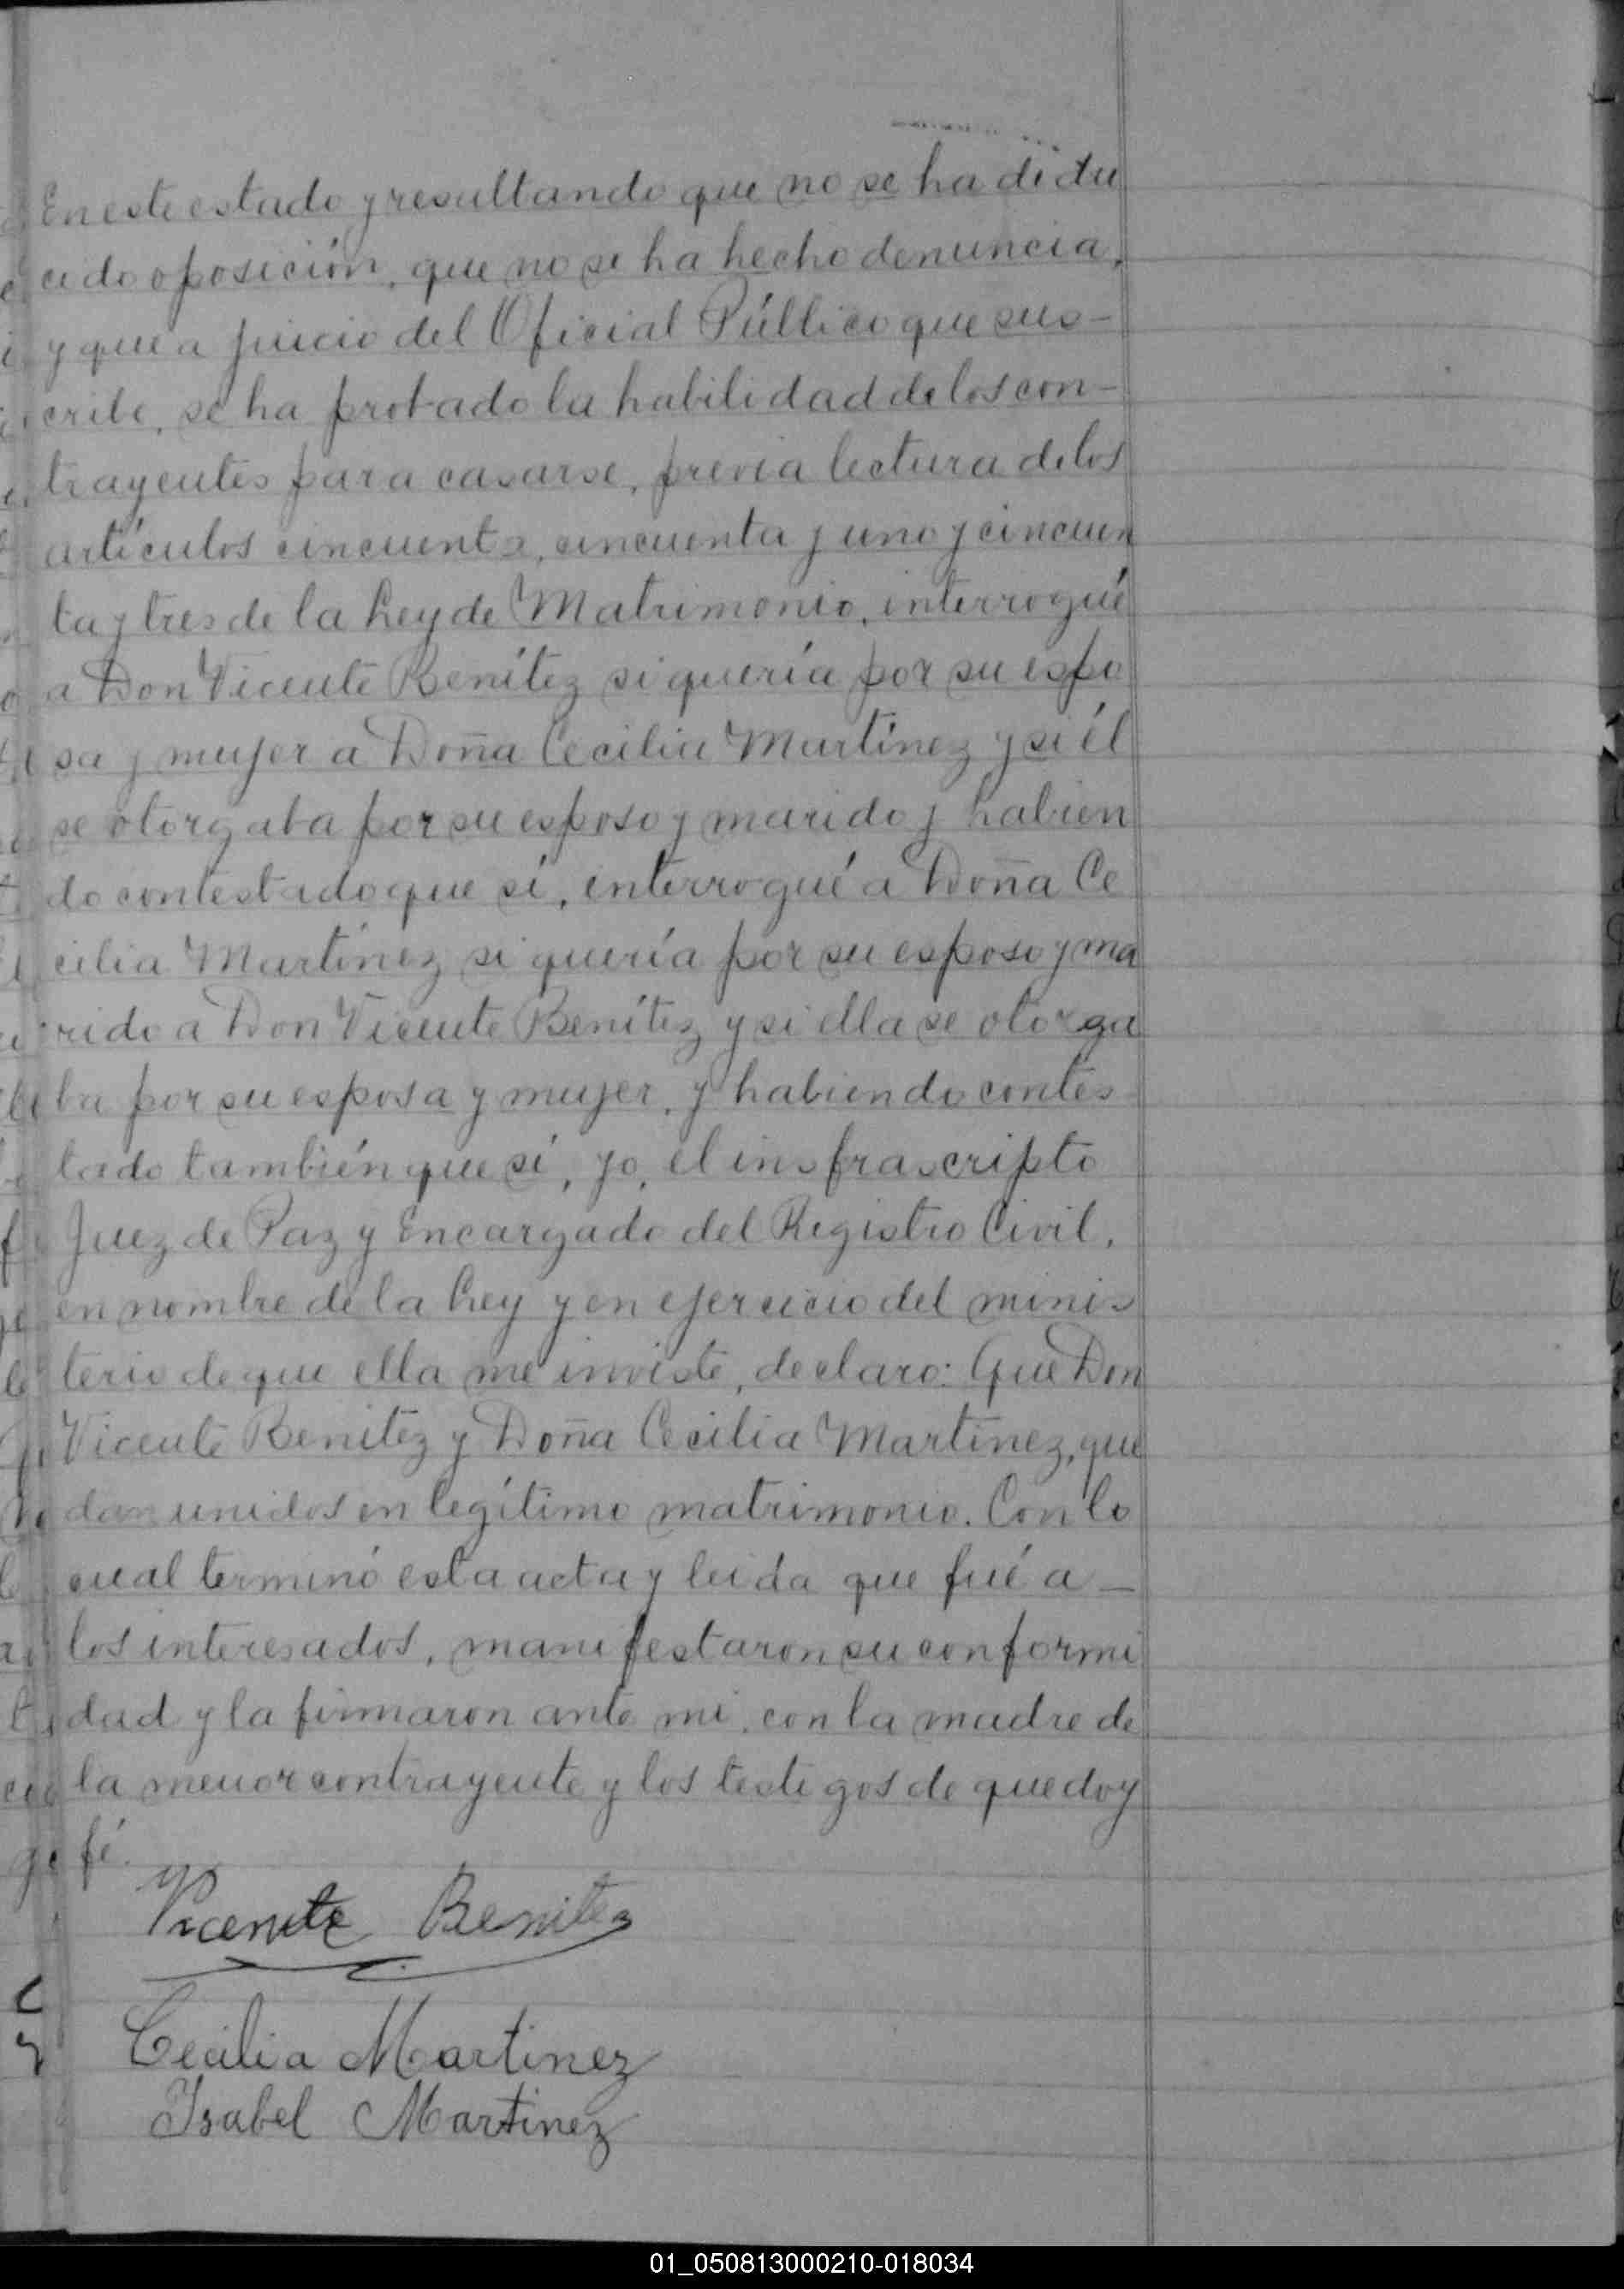 En este estado y resultando que no se ha didu
cido oposición, que no se ha hecho denuncia,
y que a juicio del Oficial Público que sus-
cribe, se ha probado la habilidad de los con-
trayentes para casarse, previa lectura de los
artículos cincuenta, cincuenta y uno y cincuen
ta y tres de la Ley de Matrimonio, interrogué
a Don Vicente Benítez si quería por su espo
sa y mujer a Doña Cecilia Martínez y si él
se otorgaba por su esposo y marido y habien
do contestado que sí, interrogué a Doña Ce
cilia Martínez si quería por su esposo y ma
rido a Don Vicente Benítez y si ella se otorga
ba por su esposa y mujer, y habiendo contes
tado también que sí, yo, el insfrascripto
Juez de Paz y Encargado del Registro Civil,
en nombre de la Ley y en ejercicio del minis
terio de que ella me inviste, declaro: Que Don
Vicente Benítez y Doña Cecilia Martínez, que
dan unidos en legítimo matrimonio. Con lo
cual terminó esta acta y leida que fué a -
los interesados, manifestaron su conformi
dad y la firmaron ante mi, con la madre de
la menor contrayente y los testigos de que doy
fé.
Vicente Benitez
Cecilia Martinez
Isabel Martinez
01_050813000210-018034